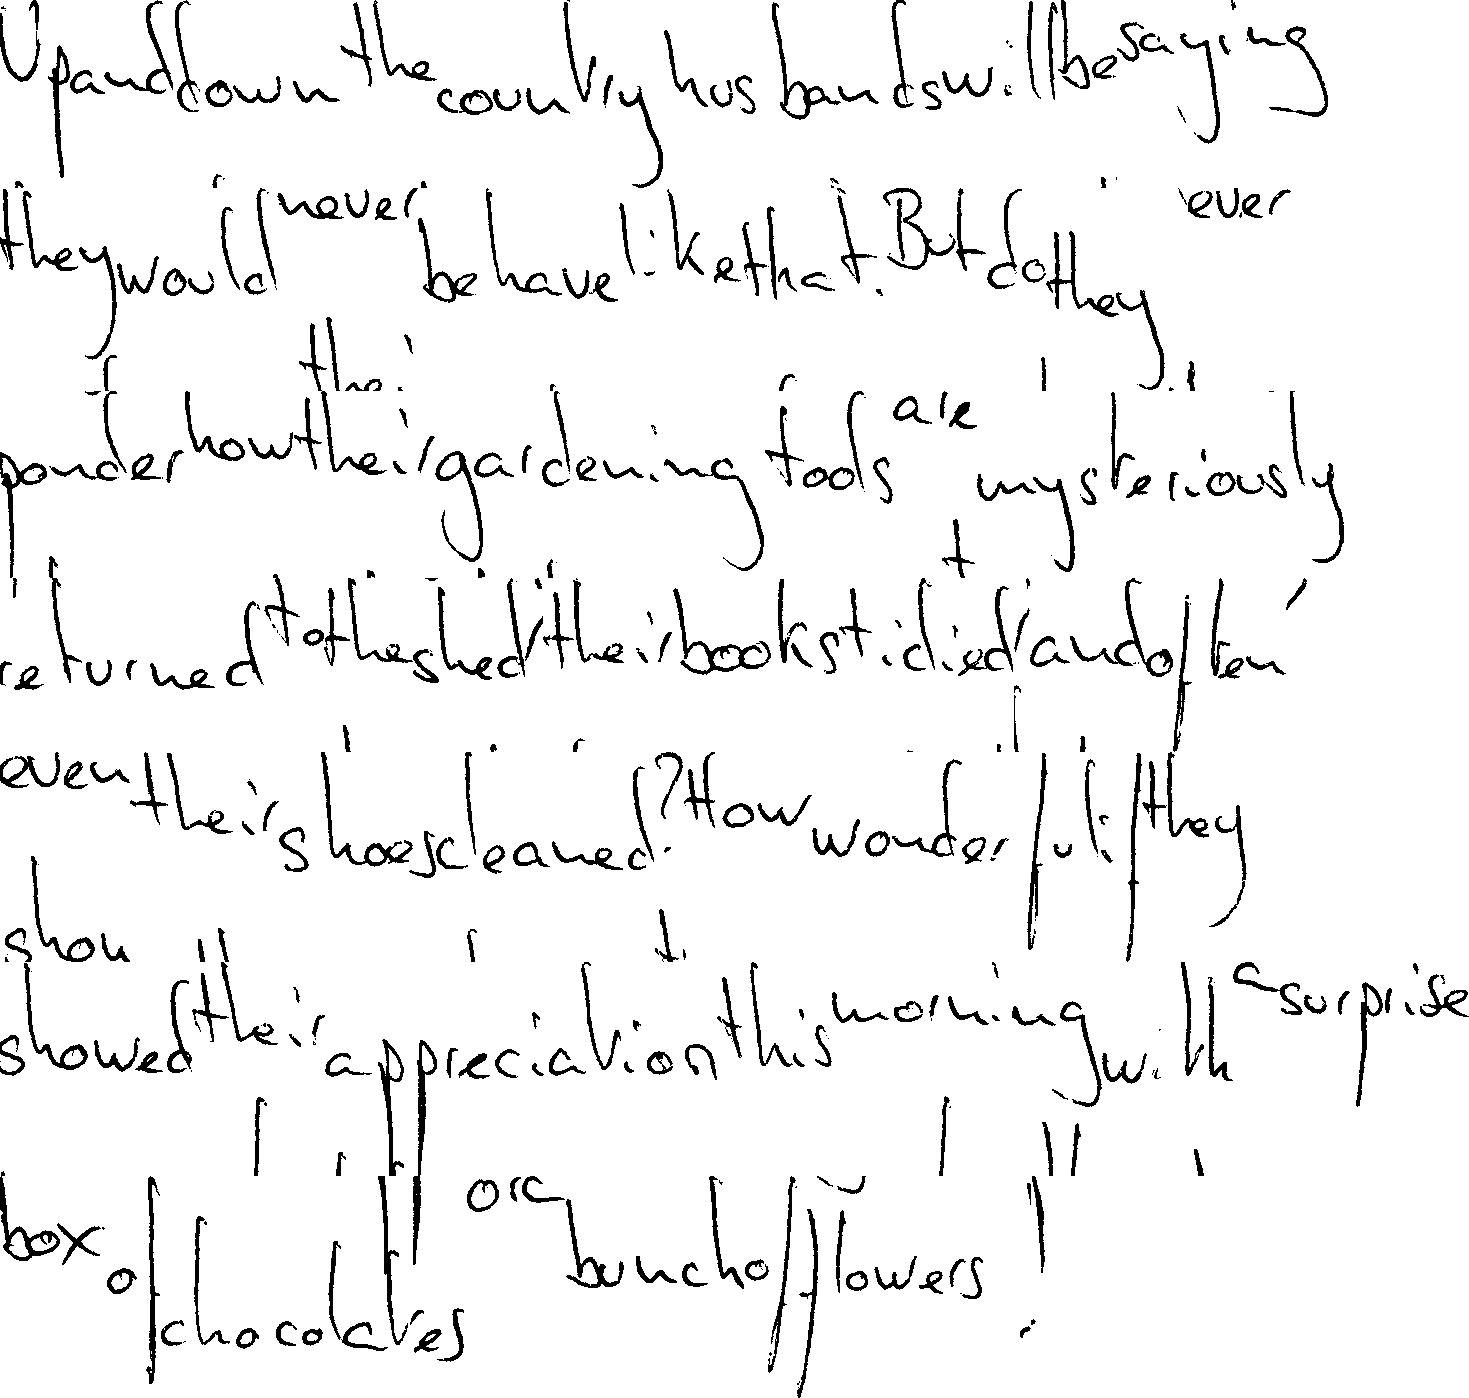 Up and down the country husbands will be saying
they would never behave like that. But do they ever
ponder how their gardening tools are mysteriously
returned to the shed, their books tidied, and often,
even their shoes cleaned? How wonderful if they
showed their appreciation this morning with a surprise
box of chocolates or a bunch of flowers!